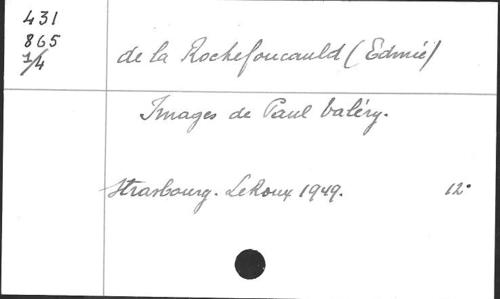 431
865
1/4
de la Rochefoucauld (Edmée)
Images de Paul Valéry.
Strasbourg. LeRoux 1949. 12°